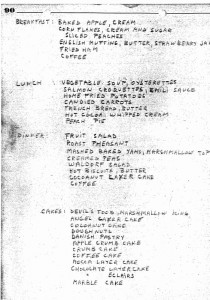 90
BREAKFAST: BAKED APPLE, CREAM
CORN FLAKES, CREAM AND SUGAR
SLICED PEACHES
ENGLISH MUFFINS, BUTTER, STRAWBERRY JAM
FRIED HAM
COFFEE
LUNCH : VEGETABLE SOUP, OYSTERETTES
SALMON CROQUETTES, CHILI SAUCE
HOME FRIED POTATOES
CANDIED CARROTS
FRENCH BREAD, BUTTER
HOT COCOA, WHIPPED CREAM
PEACH PIE
DINNER : FRUIT SALAD
ROAST PHEASANT
MASHED BAKED YAMS, MARSHMALLOW TOP
CREAMED PEAS
WALDORF SALAD
HOT BISCUITS, BUTTER
COCOANUT LAYER CAKE
COFFEE
CAKES: DEVIL'S FOOD, MARSHMALLOW ICING
ANGEL LAYER CAKE
COCOANUT CAKE
DOUGHNUTS
DANISH PASTRY
APPLE CRUMB CAKE
CRUMB CAKE
COFFEE CAKE
MOCHA LAYER CAKE
CHOCOLATE LAYER CAKE
" ECLAIRS
MARBLE CAKE